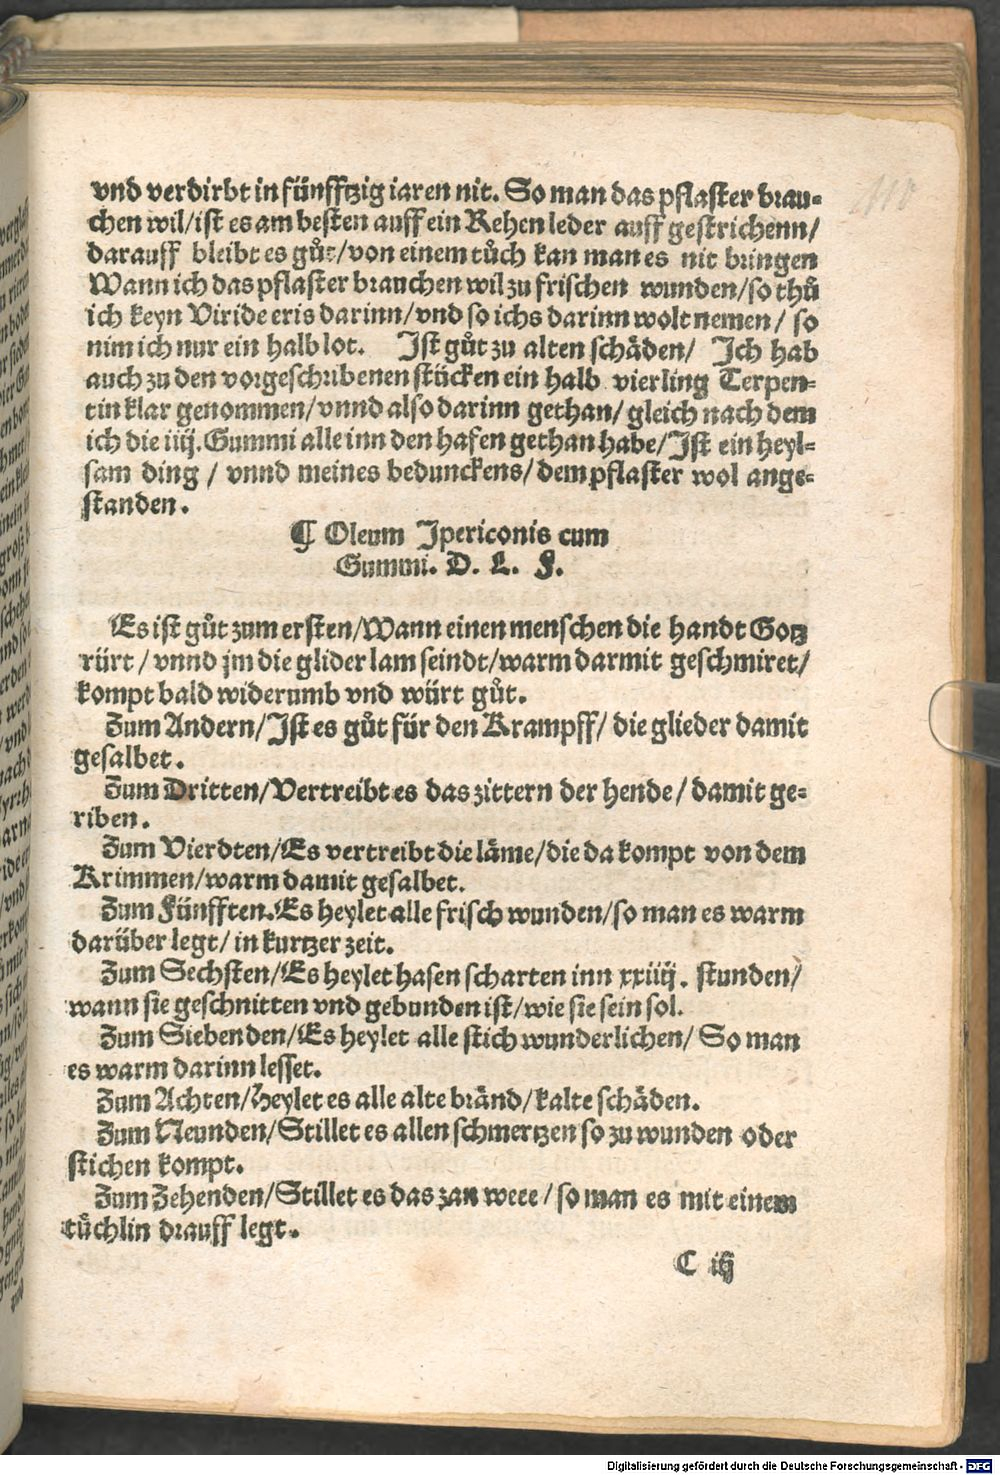 110
vnd verdirbt in fünfftzig iaren nit. So man das pflaster brau-
chen wil/ist es am besten auff ein Rehen leder auff gestrichenn/
darauff bleibt es gůt/von einem tůch kan man es nit bringen
Wann ich das pflaster brauchen wil zu frischen wunden/so thů
ich keyn Viride eris darinn/vnd so ichs darinn wolt nemen/ so
nim ich nur ein halb lot. Ist gůt zu alten schäden/ Ich hab
auch zu den vorgeschribenen stücken ein halb vierling Terpen-
tin klar genommen/vnnd also darinn gethan/ gleich nach dem
ich die iiij. Gummi alle inn den hafen gethan habe/Ist ein heyl-
sam ding / vnnd meines beduncken​s/dem pflaster wol ange-
standen.
¶ Oleum Ipericonis cum
Gummi. D. L. F.
Es ist gůt zum ersten/Wann einen menschen die handt Gotz
rürt / vnnd jm die glider lam seindt/warm darmit geschmiret/
kompt bald widerumb vnd würt gůt.
Zum Andern/Ist es gůt für den Krampff/ die glieder damit
gesalbet.
Zum Dritten/Vertreibt es das zittern der hende / damit ge-
riben.
Zum Vierdten/Es vertreibt die läme/die da kompt von dem
Krimmen/warm damit gesalbet.
Zum Fünfften.Es heylet alle frisch wunden/so man es warm
darüber legt/ in kurtzer zeit.
Zum Sechsten/Es heylet hasen scharten inn xxiiij. stunden/
wann sie geschnitten vnd gebunden ist/wie sie sein sol.
Zum Siebenden/Es heylet alle stich wunderlichen/ So man
es warm darinn lesset.
Zum Achten/Heylet es alle alte bränd/kalte schäden.
Zum Neunden/Stillet es allen schmertzen so zu wunden oder
stichen kompt.
Zum Zehenden/Stillet es das zan weee / so man es mit einem
tüchlin drauff legt.
C iij
Digitalisierung gefördert durch die Deutsche Forschungsgemeinschaft - DFG